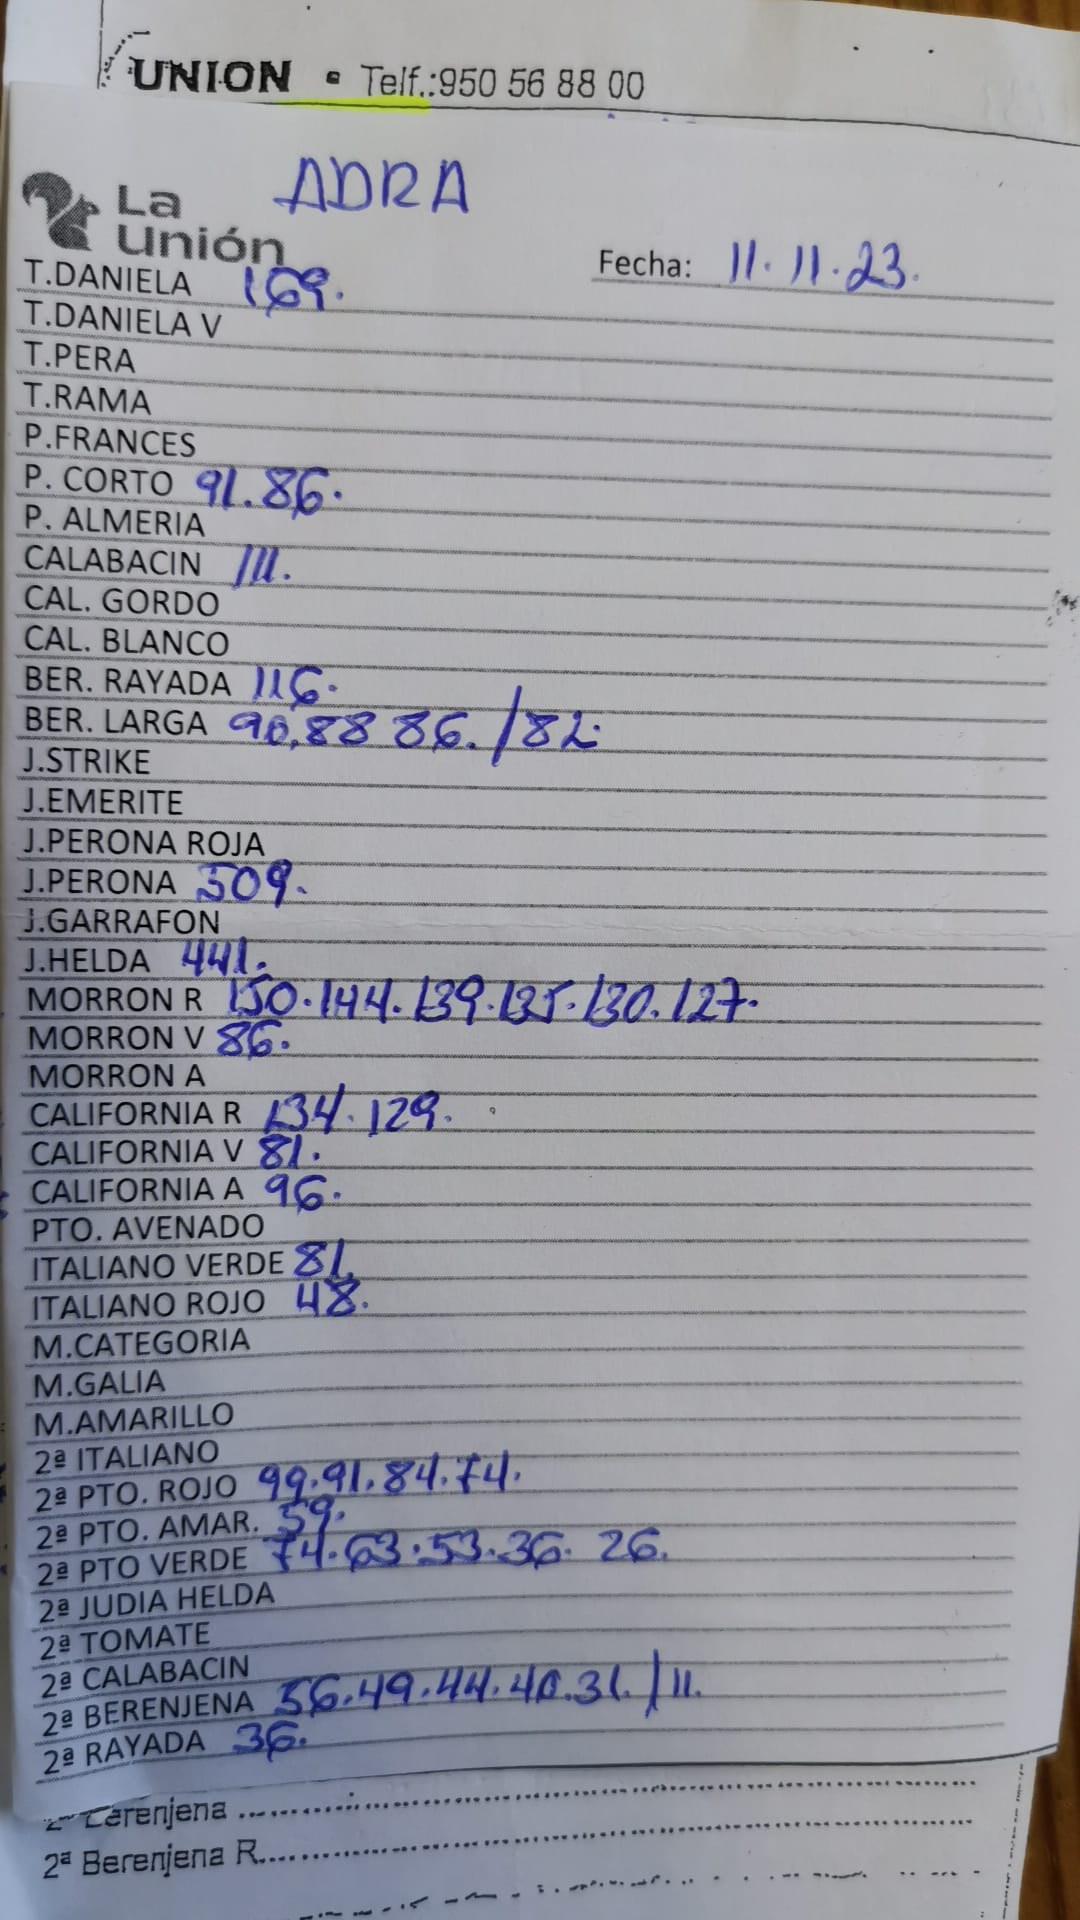 UNION • Telf.:950 56 88 00
ADRA
La
Unión
Fecha: 11.11.23.
T.DANIELA 169.
T.DANIELA V
T.PERA
T.RAMA
P.FRANCES
P. CORTO 91.86.
P. ALMERIA
CALABACIN 111.
CAL. GORDO
CAL. BLANCO
BER. RAYADA 116.
BER. LARGA 90,88 86./82.
J.STRIKE
J.EMERITE
J.PERONA ROJA
J.PERONA 509.
J.GARRAFON
J.HELDA 441.
MORRON R 150.144.139.135.130.127.
MORRON V 86.
MORRON A
CALIFORNIA R 134.129.
CALIFORNIA V 81.
CALIFORNIA A 96.
PTO. AVENADO
ITALIANO VERDE 81.
ITALIANO ROJO 48.
M.CATEGORIA
M.GALIA
M.AMARILLO
2ª ITALIANO
2ª PTO. ROJO 99.91.84.74.
2ª PTO. AMAR. 59.
2ª PTO VERDE 74.63.53.36. 26.
2ª JUDIA HELDA
2ª TOMATE
2ª CALABACIN
2ª BERENJENA 56.49.44.40.31./11.
2ª RAYADA 36.
2ª Berenjena
2ª Berenjena R.